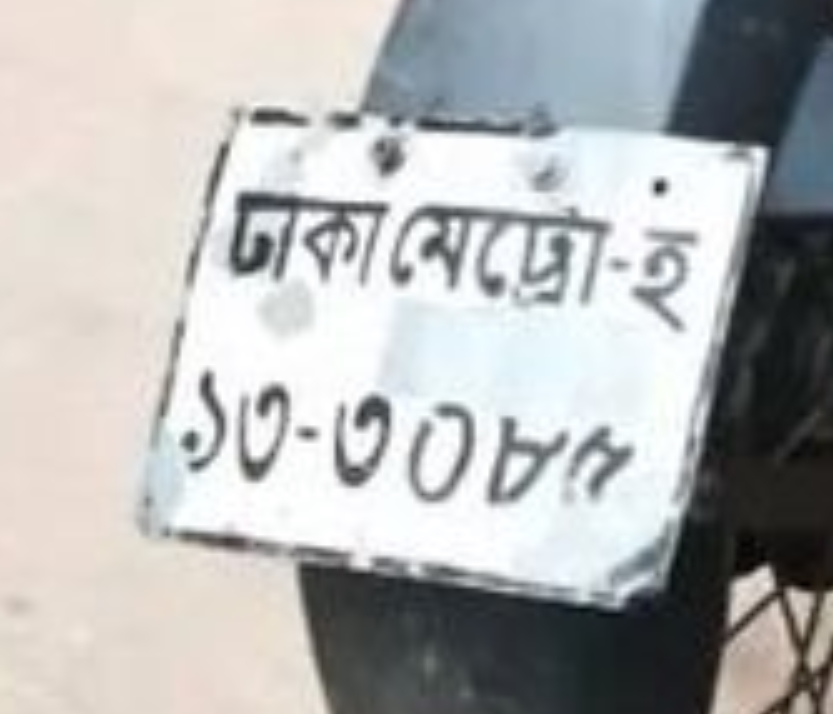 ঢাকা মেট্রো-হ
১৩-৩০৮